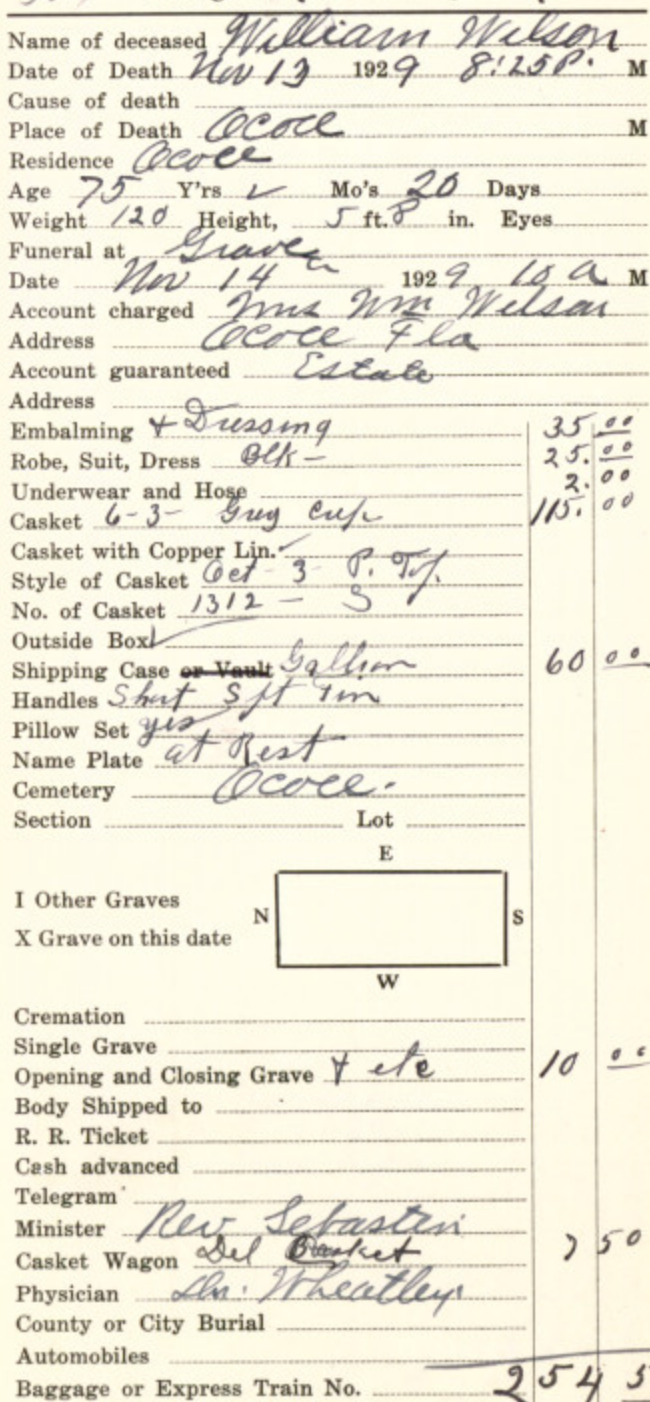 Name of deceased William Wilson
Date of Death Nov 13 1929 8:25 P. M
Cause of death
Place of Death Ocoee M
Residence Ocoee
Age 75 Y'rs ✓ Mo's 20 Days
Weight 120 Height, 5 ft. 8 in. Eyes
Funeral at Grave
Date Nov 14 1929 10 a M
Account charged Mrs Wm Wilson
Address Ocoee Fla
Account guaranteed Estate
Address
Embalming & Dressing 35 00
Robe, Suit, Dress Blk - 25. 00
Underwear and Hose 2. 00
Casket 6-3- Grey Crep 115. 00
Casket with Copper Lin. ✓
Style of Casket Oct 3 P. Top.
No. of Casket 1312 - S
Outside Box ✓
Shipping Case or Vault 60 00
Handles Short
Pillow Set yes
Name Plate at Rest
Cemetery Ocoee.
Section Lot
E
I Other Graves
N S
X Grave on this date
W
Cremation
Single Grave
Opening and Closing Grave & etc 10 00
Body Shipped to
R. R. Ticket
Cash advanced
Telegram
Minister Rev Sebastin
Casket Wagon Del Basket 7 50
Physician Dr. Wheatley
County or City Burial
Automobiles
Baggage or Express Train No. 254 5